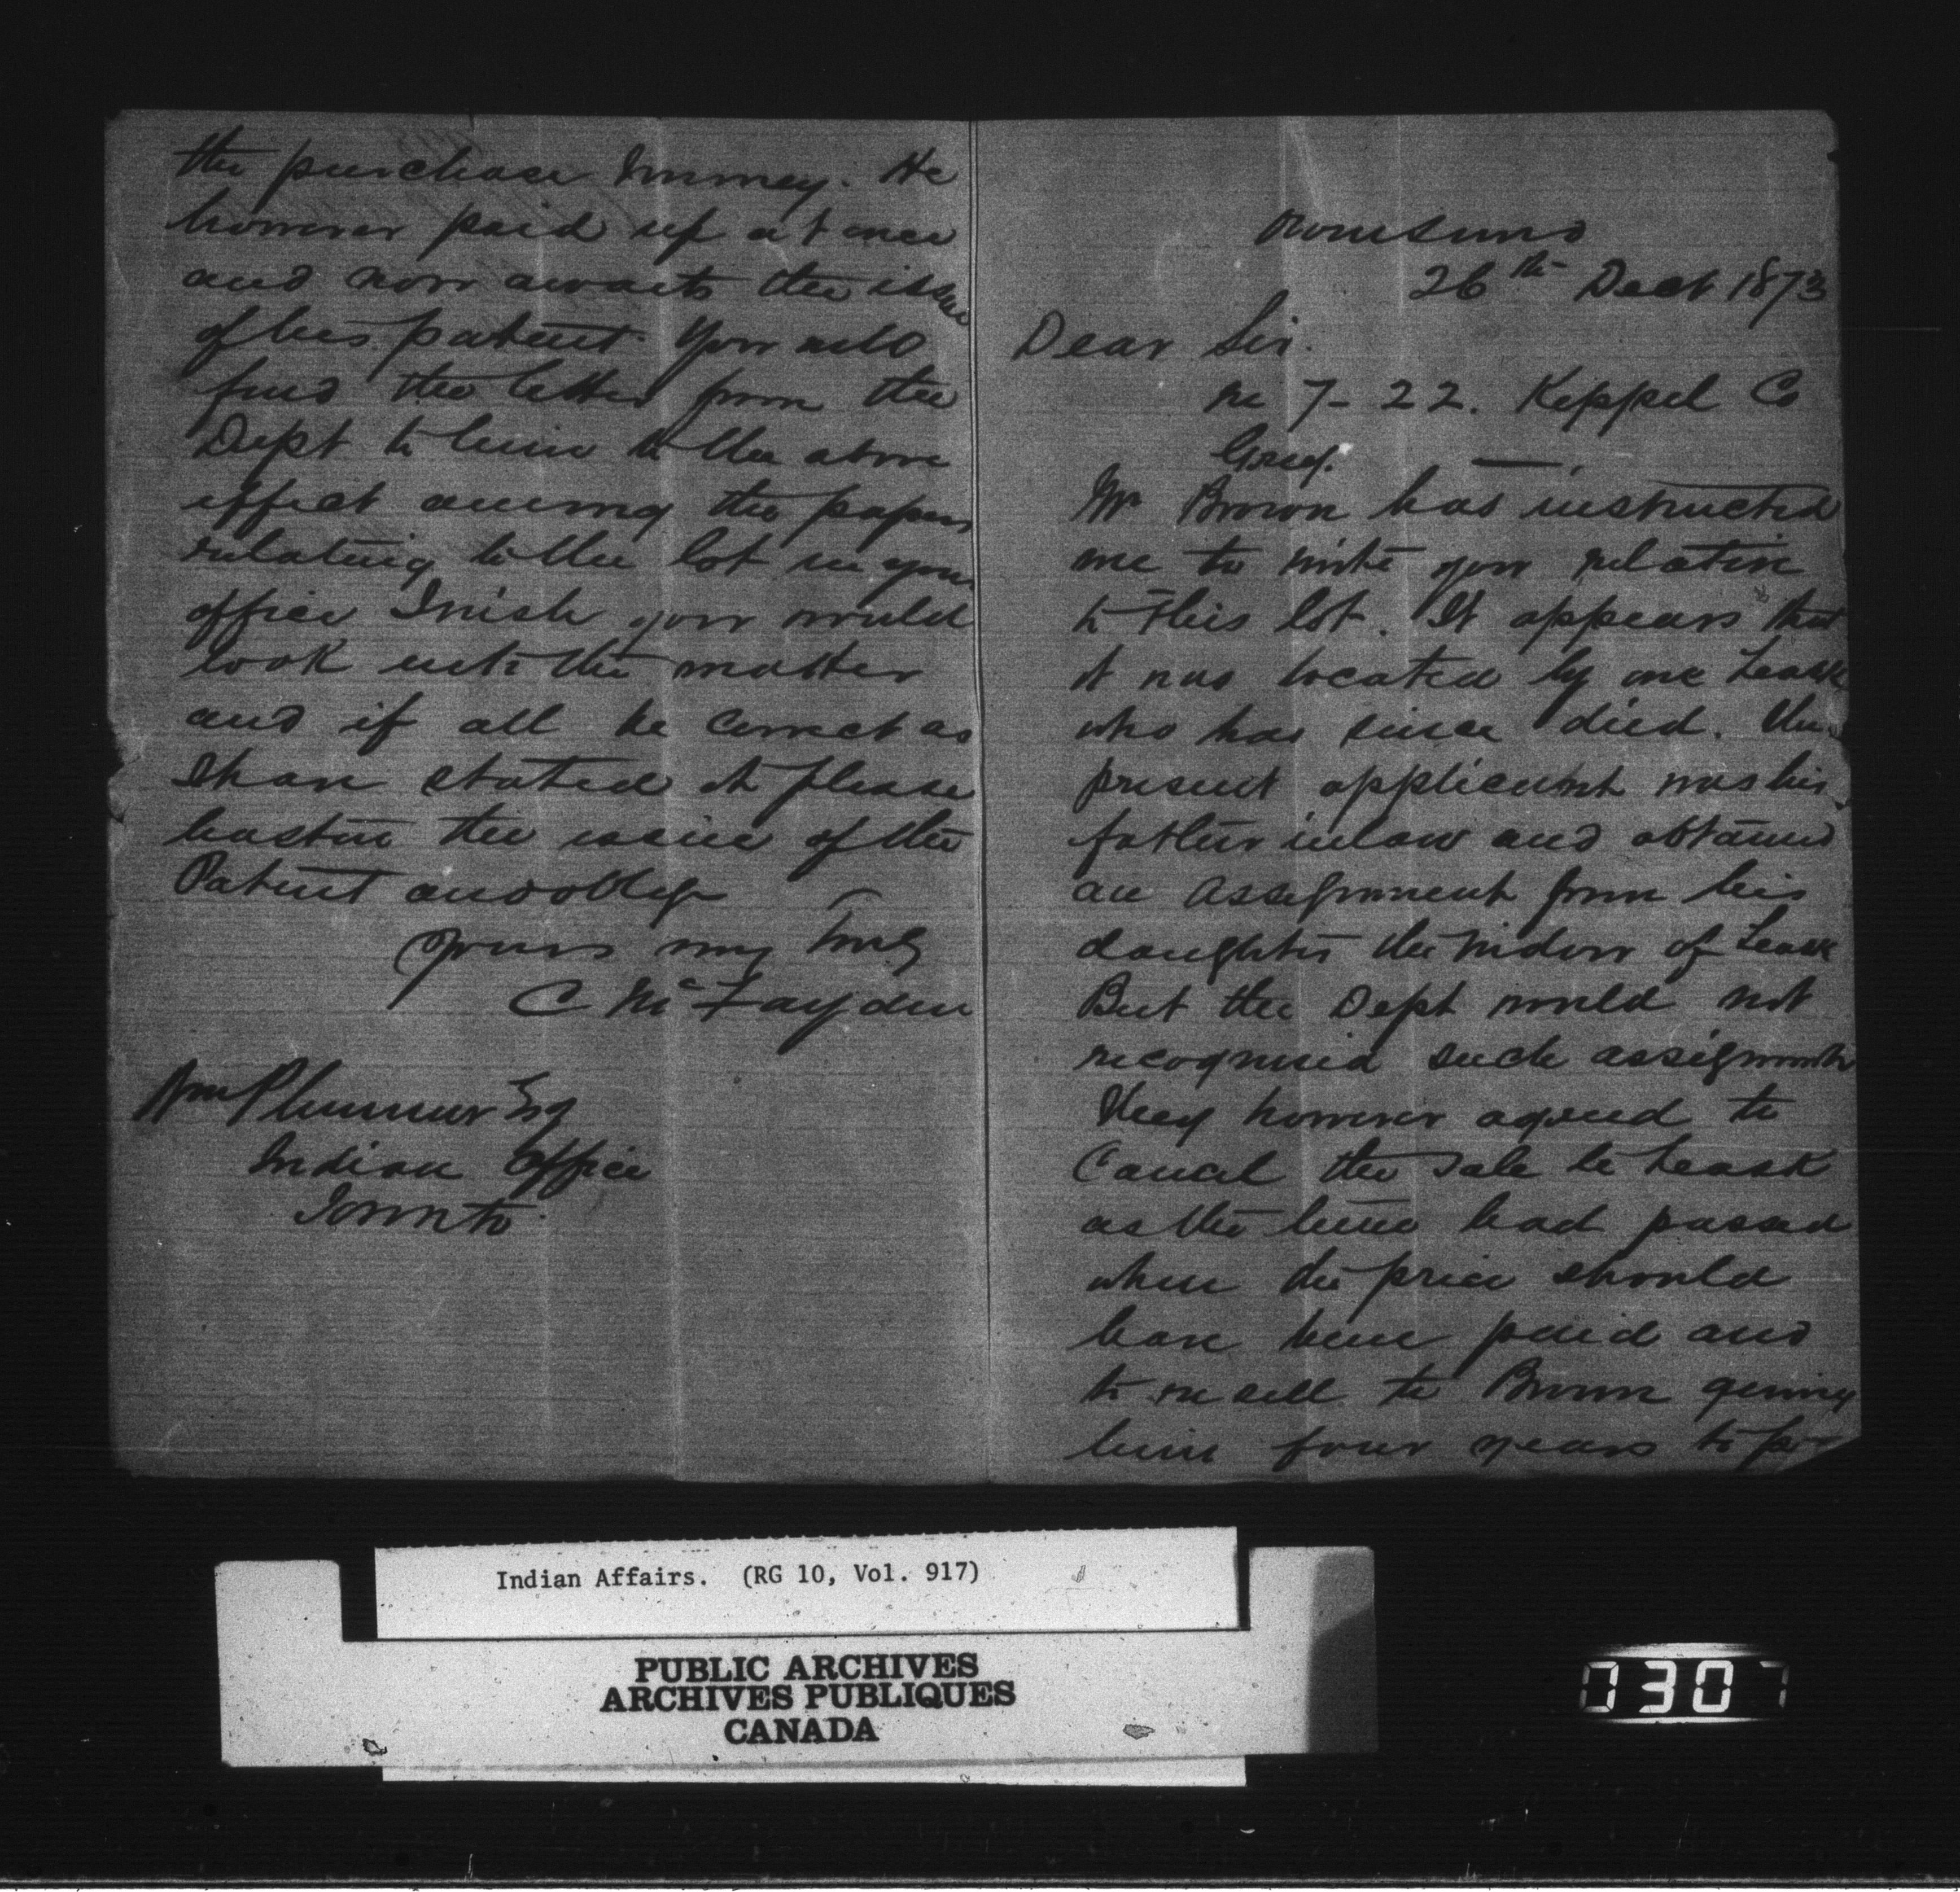 Owen Sound
26th Decr 1873
Dear Sir.
re 7 - 22. Keppel Co
Grey.
Mr Brown has instructed
me to write you relative
to this lot. It appears that
it was located by one Leask
who has since died. The
present applicant was his
father in law and obtained
an assignment from his
daughter the widow of Leask
But the Dept would not
recognised such assignments
They however agreed to
Cancel the sale to Leask
as the time had passed
when the price should
have been paid and
to resell to Brown giving
him four years to pay
the purchase money. He
however paid up at once
and now awaits the issue
of his patent. You will
find the letter from the
Dept to him to the above
effect among the papers
relating to the lot in your
office I wish you would
look into the matter
and if all be correct as
I have stated it please
hasten the issue of the
Patent and oblige
Yours very truly
C McFayden
Wm Plummer Esq
Indian Office
Toronto
Indian Affairs. (RG 10, Vol. 917)
PUBLIC ARCHIVES
ARCHIVES PUBLIQUES
CANADA
0307